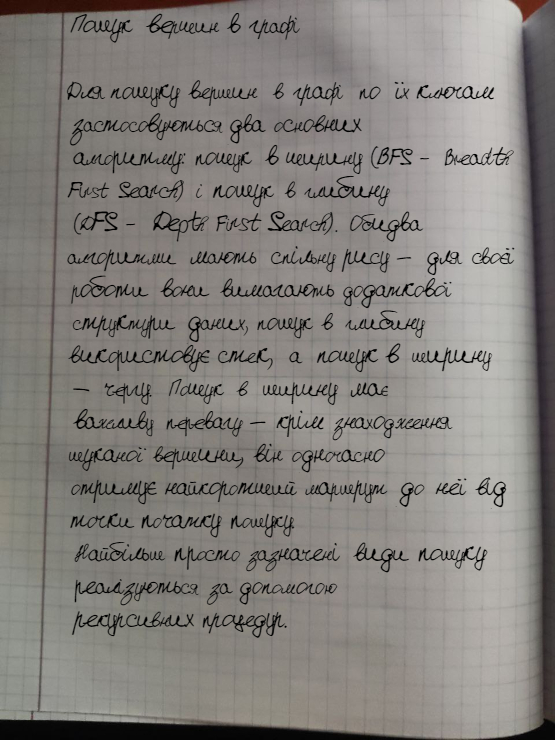 Пошук вершин в графі
Для пошуку вершин в графі по їх ключам
застосовуються два основних
алгоритму: пошук в ширину (BFS – Breadth
First Search) і пошук в глибину
(DFS – Depth First Search). Обидва
алгоритми мають спільну рису – для своєї
роботи вони вимагають додаткової
структури даних, пошук в глибину
використовує стек, а пошук в ширину
– чергу. Пошук в ширину має
важливу перевагу – крім знаходження
шуканої вершини, він одночасно
отримує найкоротший маршрут до неї від
точки початку пошуку
Найбільш просто зазначені види пошуку
реалізуються за допомогою
рекурсивних процедур.